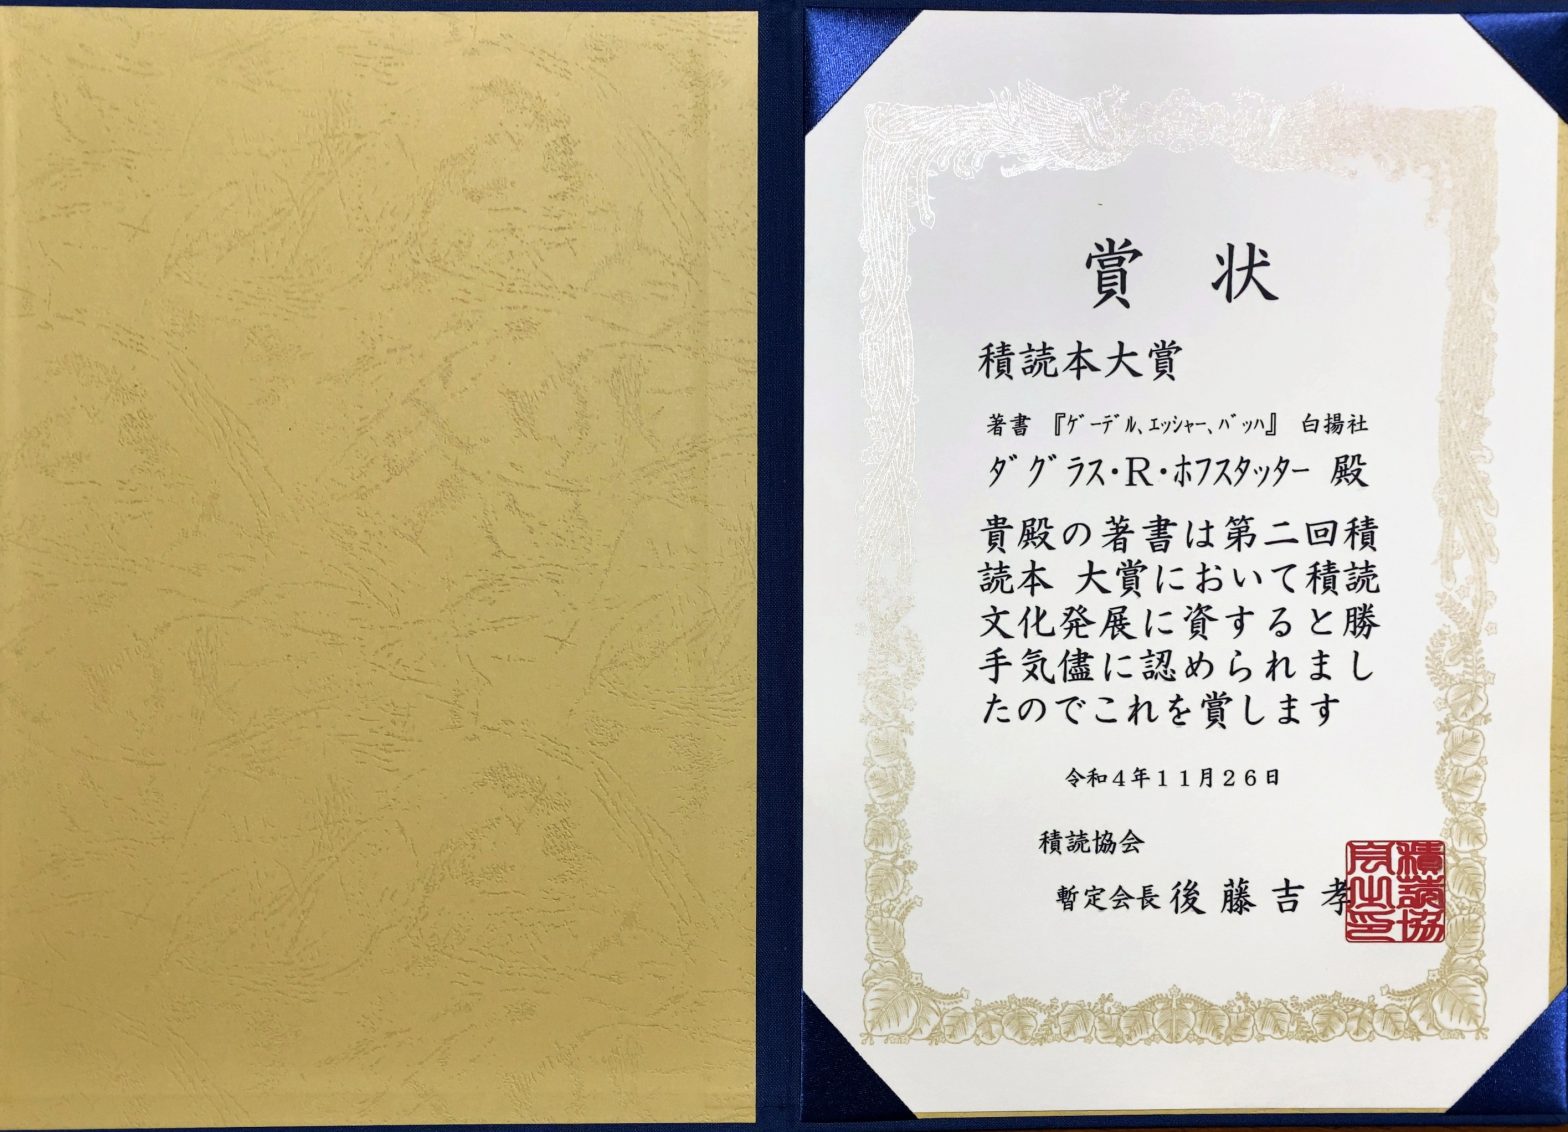 賞 状
積読本大賞
著書 『ゲーデル、エッシャー、バッハ』 白揚社
ダグラス・R・ホフスタッター 殿
貴殿の著書は第二回積
読本 大賞において積読
文化発展に資すると勝
手気儘に認められまし
たのでこれを賞します
令和4年11月26日
積読協会
暫定会長 後藤吉孝
積読協
会之印